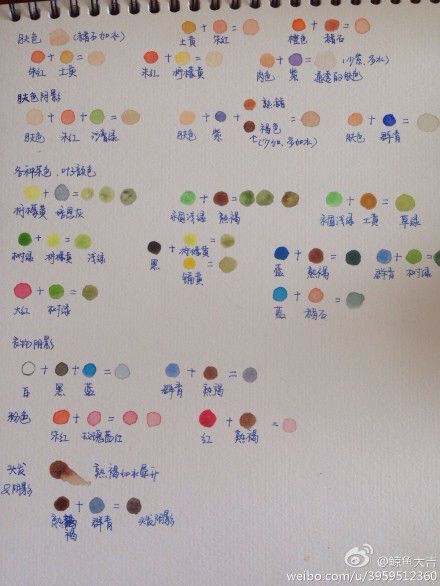 肤色 (赭石加水) 土黄 朱红 橙色 赭石
朱红 土黄 朱红 柠檬黄 肉色 紫 (少紫,多水) 透透的肤色
肤色阴影 熟赭
肤色 朱红 肤色 紫 褐色 (少加,多加水) 肤色 群青
各种茶色,叶子颜色
柠檬黄 永固浅绿 熟褐 永固浅绿 土黄 草绿
树绿 柠檬黄 浅绿 黑 柠檬黄 蓝 熟褐 群青 树绿
镉黄
大红 树绿 蓝 赭石
衣物阴影
白 黑 蓝 群青 熟褐
粉色 朱红 玫瑰茜红 红 熟褐
头发&阴影 熟褐加水晕开
熟褐 群青 头发阴影
@鲸鱼大吉
weibo.com/u/3959512360